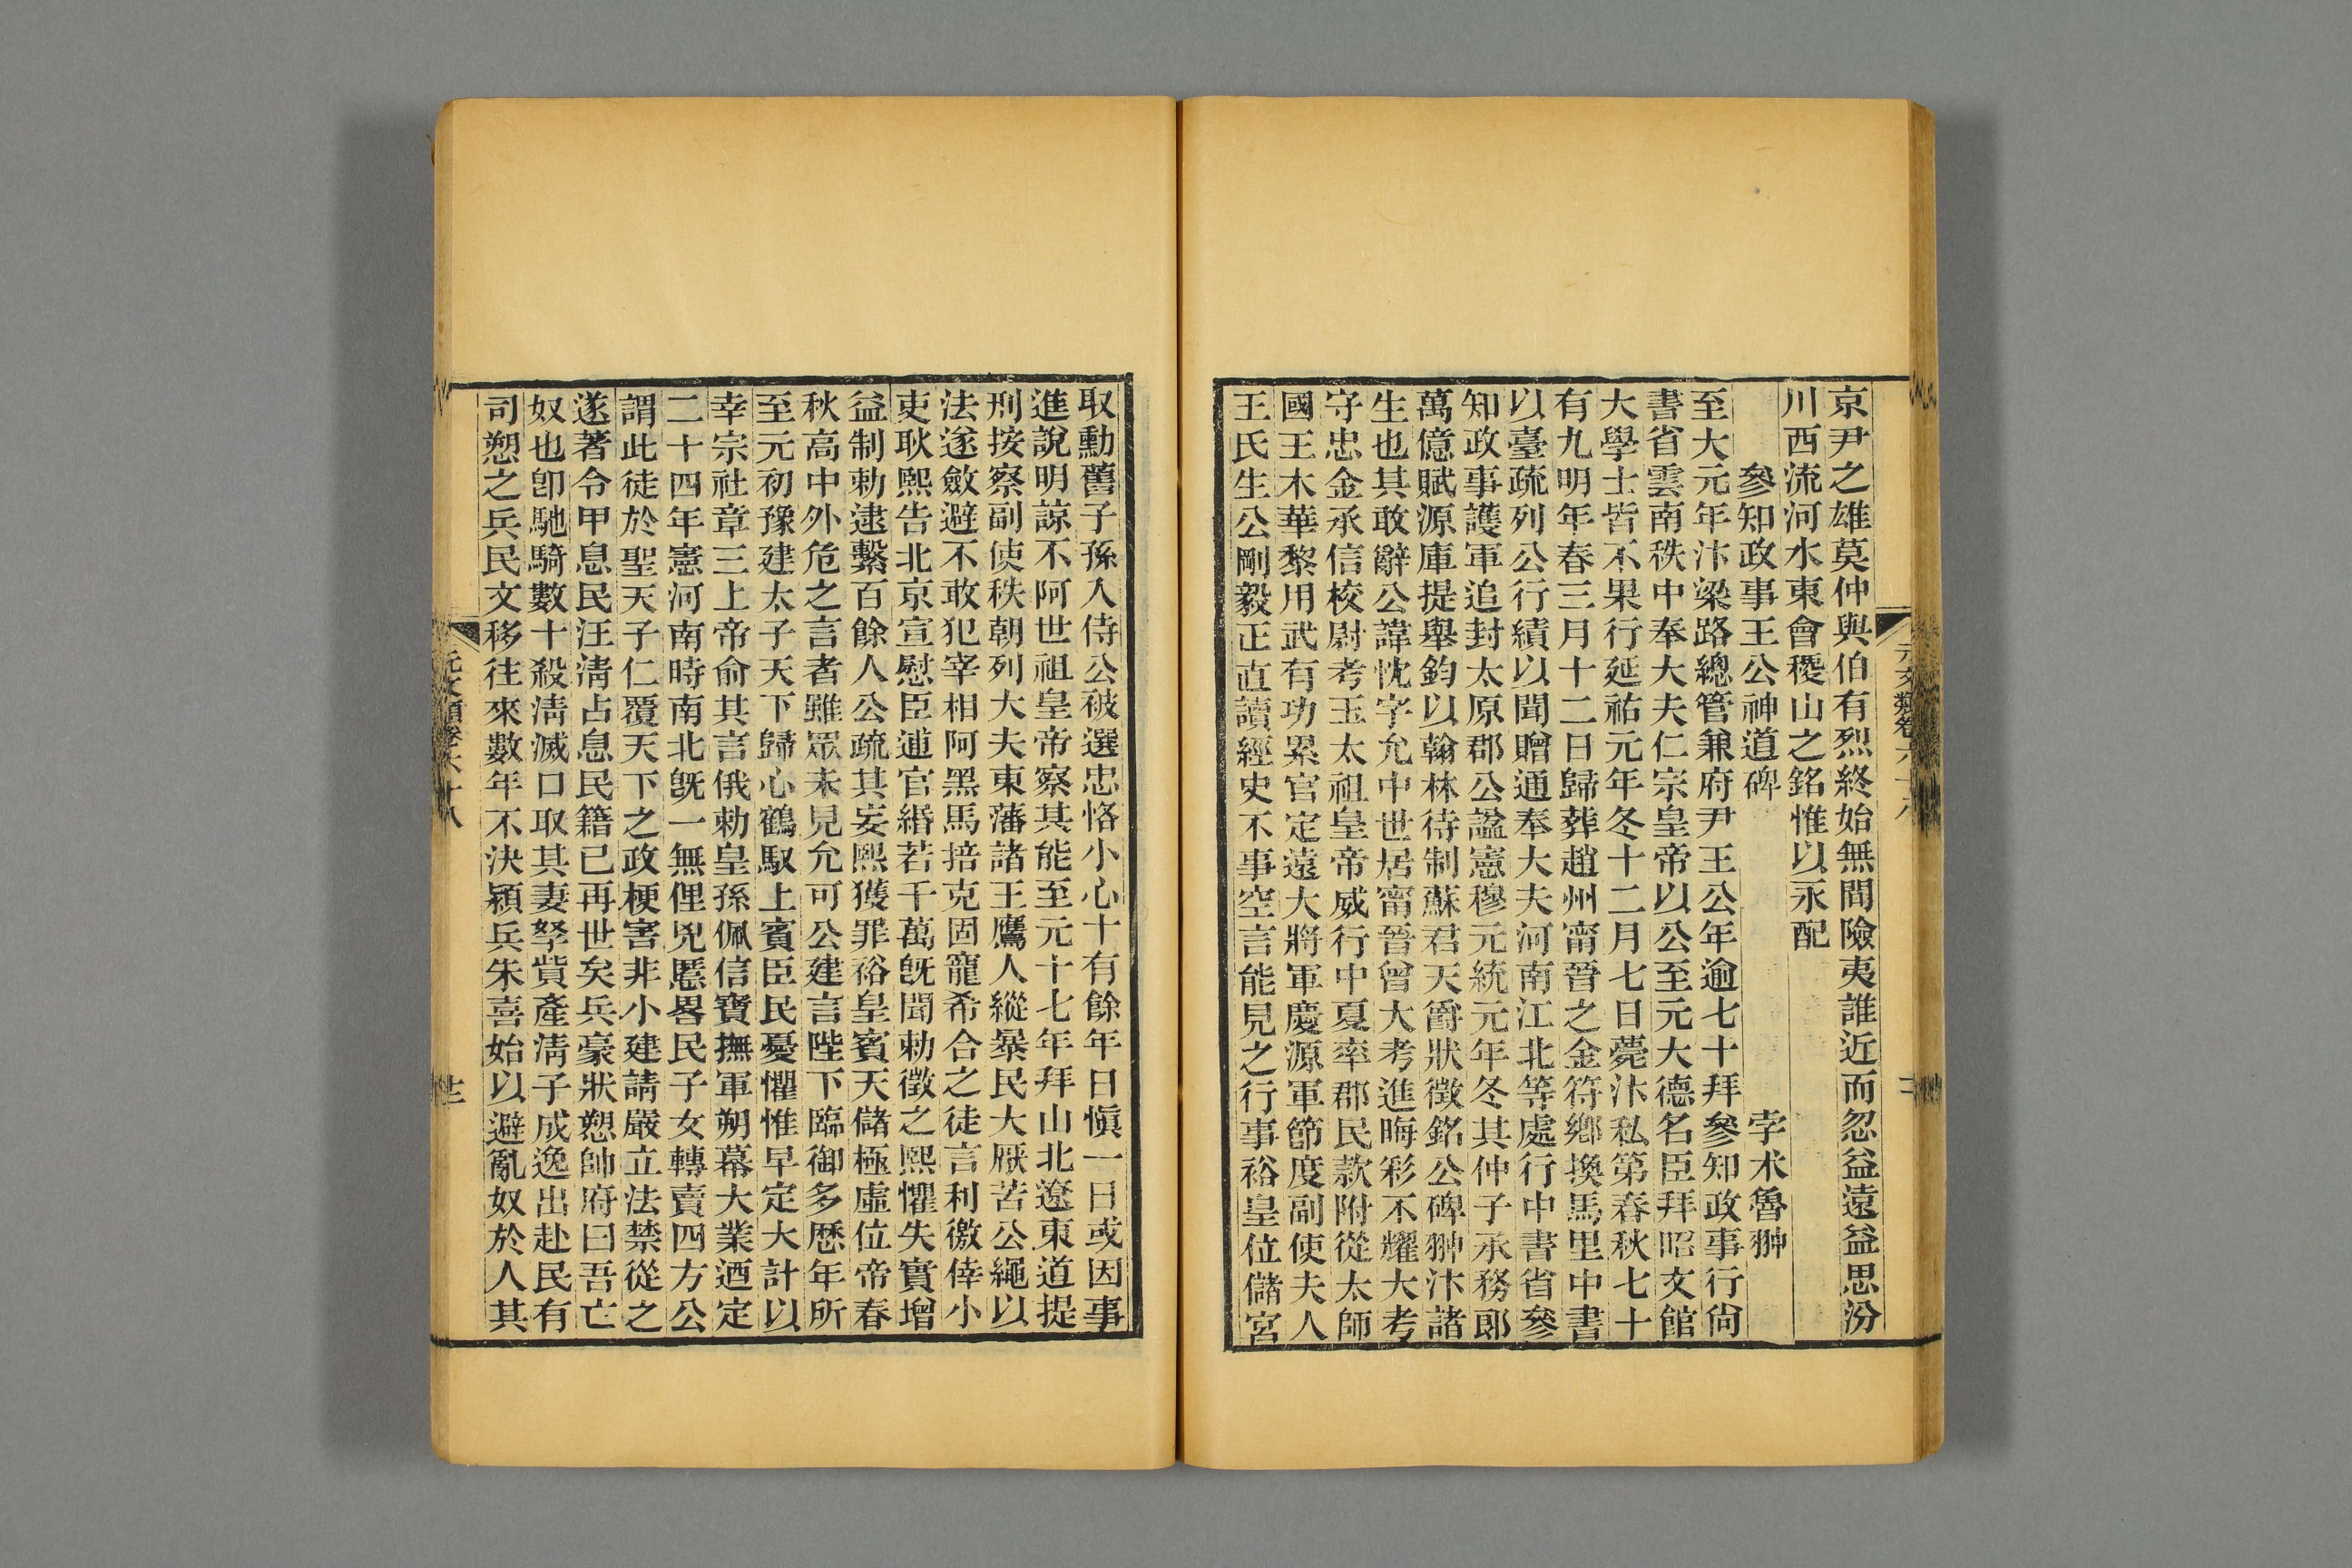 京尹之雄莫仲與伯有烈終始無間險夷誰近而忍益遠益思汾
川西流河水東會稷山之銘惟以永配
參知政事王公神道碑 孛术魯翀
至大元年汴梁路總管兼府尹王公年逾七十拜參知政事行尙
書省雲南秩中奉大夫仁宗皇帝以公至元大德名臣拜昭文館
大學士皆不果行延祐元年冬十二月七日薨汴私第春秋七十
有九明年春三月十二日歸葬趙州甯晉之金符鄉換馬里中書
以臺疏列公行績以聞贈通奉大夫河南江北等處行中書省參
知政事護軍追封太原郡公諡憲穆元統元年冬其仲子承務郞
萬億賦源庫提舉鈞以翰林待制蘇君天爵狀徵銘公碑翀汴諸
生也其敢辭公諱忱字允中世居甯晉曾大考進晦彩不耀大考
守忠金承信校尉考玉太祖皇帝威行中夏率郡民款附從太師
國王木華黎用武有功累官定遠大將軍慶源軍節度副使夫人
王氏生公剛毅正直讀經史不事空言能見之行事裕皇位儲宮
元文類卷六十八
取勳舊子孫入侍公被選忠恪小心十有餘年日愼一日或因事
進說明諒不阿世祖皇帝察其能至元十七年拜山北遼東道提
刑按察副使秩朝列大夫東藩諸王鷹人縱暴民大厭苦公繩以
法遂斂避不敢犯宰相阿黑馬掊克固寵希合之徒言利徼倖小
吏耿熙告北京宣慰臣逋官緡若干萬旣聞勅徵之熙懼失實增
益制勅逮繫百餘人公疏其妄熙獲罪裕皇賓天儲極虛位帝春
秋高中外危之言者雖眾未見允可公建言陛下臨御多歷年所
至元初豫建太子天下歸心鶴馭上賓臣民憂懼惟早定大計以
幸宗社章三上帝俞其言俄勅皇孫佩信寶撫軍朔幕大業迺定
二十四年憲河南時南北旣一無俚兇慝畧民子女轉賣四方公
謂此徒於聖天子仁覆天下之政梗害非小建請嚴立法禁從之
遂著令甲息民汪淸占息民籍已再世矣兵豪狀愬帥府曰吾亡
奴也卽馳騎數十殺淸滅口取其妻孥貲產淸子成逸出赴民有
司愬之兵民文移往來數年不決潁兵朱喜始以避亂奴於人其
元文類卷六十八